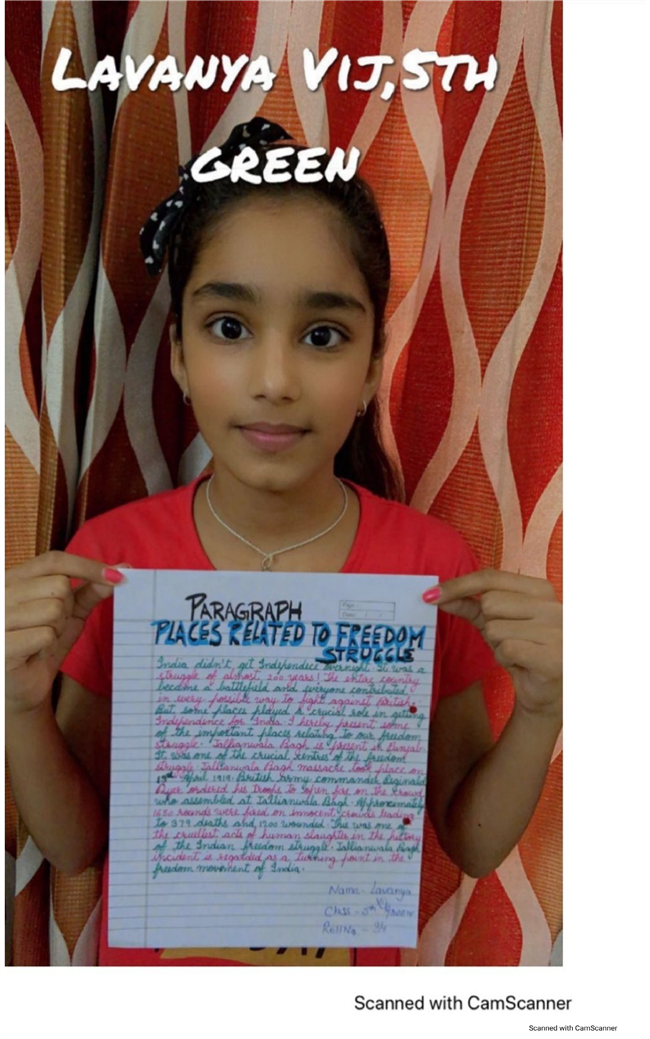 LAVANYA VIJ,5TH
GREEN
PARAGRAPH
PLACES RELATED TO FREEDOM
STRUGGLE
India didn't get Independece overnight. It was a
struggle of almost 200 years! The entire country
became a battlefield and everyone contributed
in every possible way to fight against British.
But some places played a crucial role in getting
Independence for India. I hereby present some
of the important places relating to our freedom
struggle. Jallianwala Bagh is present in Punjab.
It was one of the crucial centres of the freedom
struggle. Jallianwala Bagh massacre took place on
13th April 1919. British Army commander Reginald
Dyer ordered his troops to open fire on the crowd
who assembled at Jallianwala Bagh. Approximately
1650 rounds were fired on innocent crowds leading
to 379 deaths and 1200 wounded. This was one of
the cruellest acts of human slaughter in the history
of the Indian freedom struggle. Jallianwala Bagh
incident is regarded as a turning point in the
freedom movement of India.
Name - Lavanya
Vij
Class - 5th Green
Roll No -
Scanned with CamScanner
Scanned with CamScanner